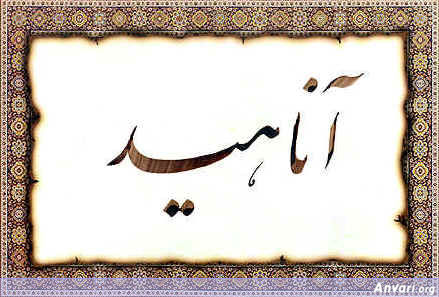 آناهید
Anvari.org